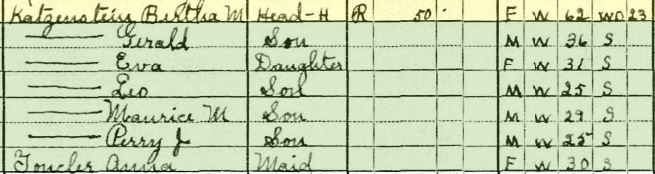 Katzenstein Bertha M Head-H R 50 F W 62 WD 23
—— Gerald Son M W 36 S
—— Eva Daughter F W 31 S
—— Leo Son M W 25 S
—— Maurice M Son M W 29 S
—— Perry J Son M W 25 S
Anna Maid F W 30 S